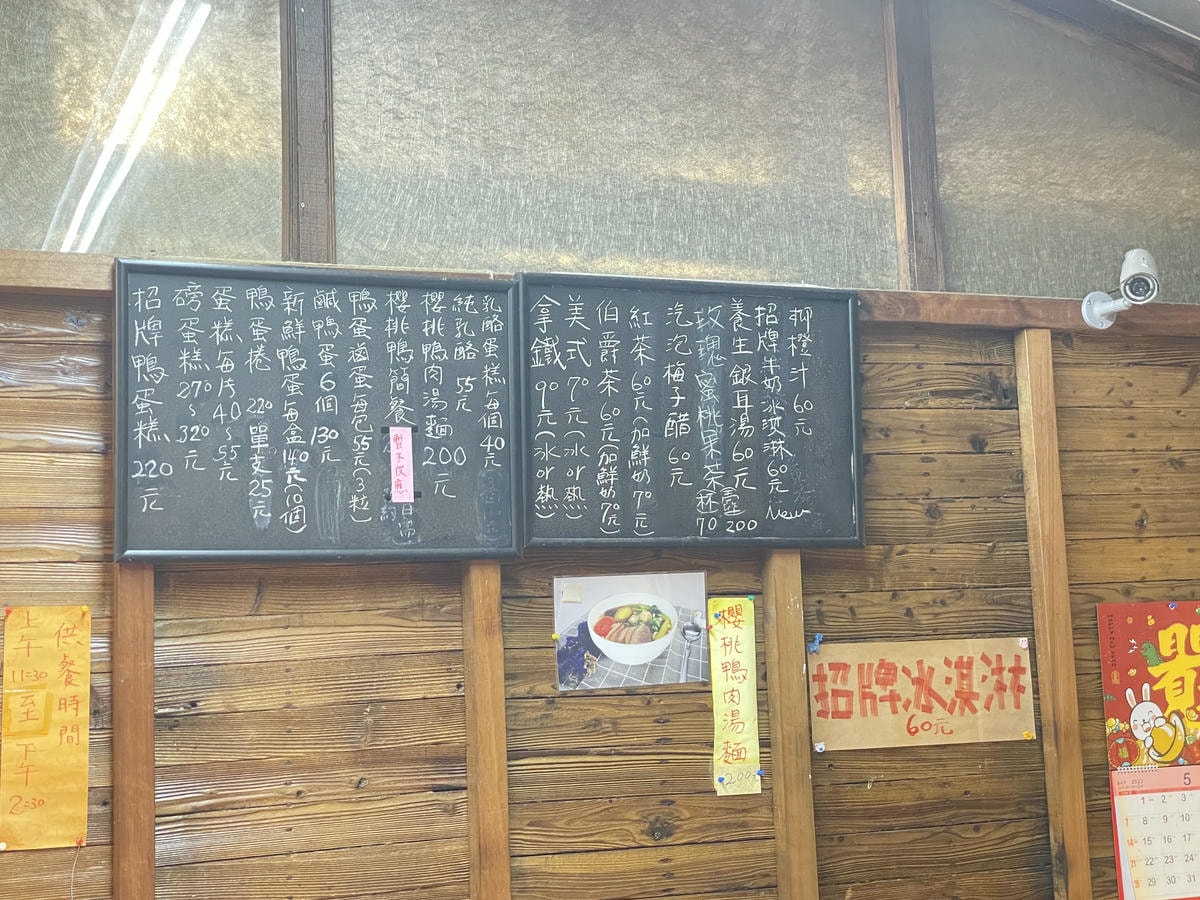 柳橙汁60元
招牌牛奶冰淇淋60元 New
養生銀耳湯60元
玫瑰蜜桃果茶 壺200 杯70
汽泡梅子醋60元
紅茶60元(加鮮奶70元)
伯爵茶60元(加鮮奶70元)
美式70元(冰or熱)
拿鐵90元(冰or熱)
乳酪蛋糕每個40元
純乳酪55元
櫻桃鴨肉湯麵200元
櫻桃鴨簡餐
暫不供應
鴨蛋滷蛋每包55元(3粒)
鹹鴨蛋6個130元
新鮮鴨蛋每盒140元(10個)
鴨蛋捲220 單支25元
蛋糕每片40~55元
磅蛋糕270~320元
招牌鴨蛋糕220元
供餐時間
上午11:30至下午2:30
櫻桃鴨肉湯麵
200元
招牌冰淇淋
60元
5
1 2 3
7 8 9 10
14 15 16 17
21 22 23 24
28 29 30 31